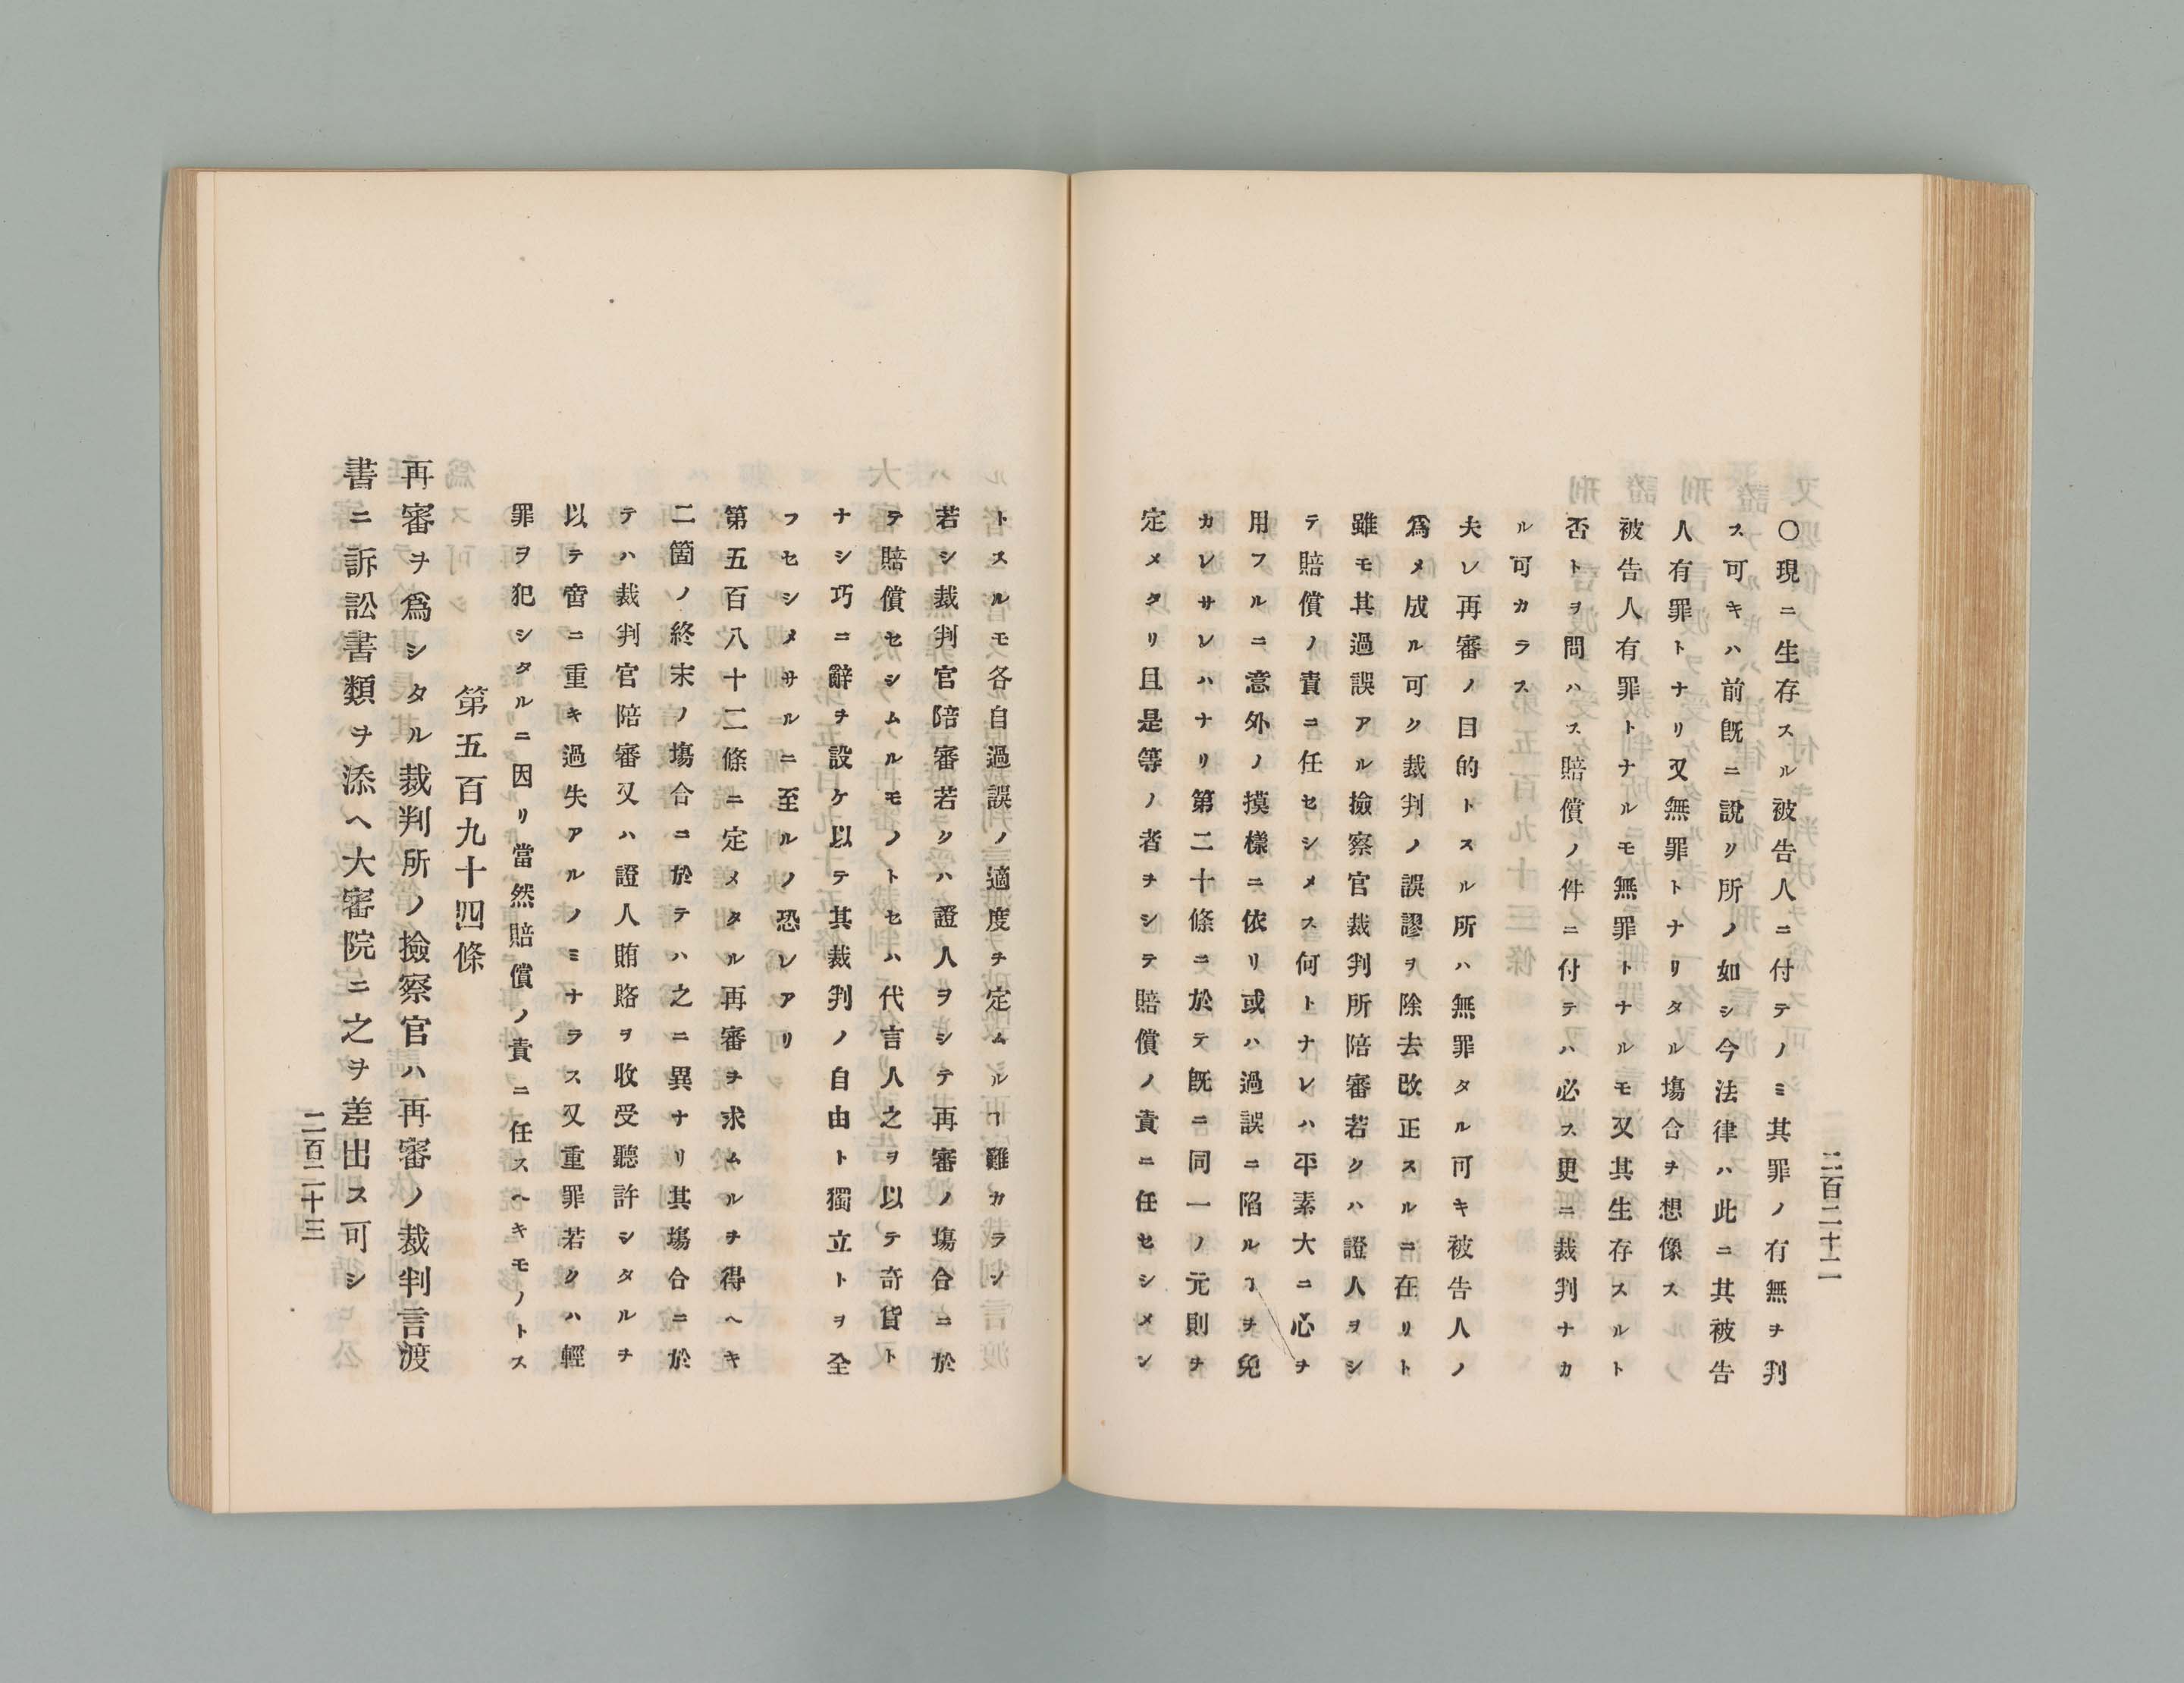 二百二十二
〇現ニ生存スル被告人ニ付テノミ其罪ノ有無ヲ判
ス可キハ前既ニ說リ所ノ如シ今法律ハ此ニ其被告
人有罪トナリ又無罪トナリタル塲合ヲ想像スルト
被告人有罪トナルモ無罪トナルモ又其生存スルト
否トヲ問ハス賠償ノ件ニ付テハ必ス更ニ裁判ナカ
ル可カラス
夫レ再審ノ目的トスル所ハ無罪タル可キ被告人ノ
爲メ成ル可ク裁判ノ誤謬ヲ除去改正スルニ在リト
雖モ其過誤アル撿察官裁判所陪審若クハ證人ヲシ
テ賠償ノ責ニ任セシメス何トナレハ平素大ニ心ヲ
用フルニ意外ノ摸樣ニ依リ或ハ過誤ニ陷ルヿヲ免
カレサレハナリ第二十條ニ於テ既ニ同一ノ元則ヲ
定メタリ且是等ノ者ヲシテ賠償ノ責ニ任セシメン
トスルモ各自過誤ノ適度ヲ定ムルヿ難カラン
若シ裁判官陪審若クハ證人ヲシテ再審ノ塲合ニ於
テ賠償セシムルモノトセハ代言人之ヲ以テ奇貨ト
ナシ巧ニ辭ヲ設ケ以テ其裁判ノ自由ト獨立トヲ全
フセシメサルニ至ルノ恐レアリ
第五百八十二條ニ定メタル再審ヲ求ムルヲ得ヘキ
二箇ノ終末ノ塲合ニ於テハ之ニ異ナリ其塲合ニ於
テハ裁判官陪審又ハ證人賄賂ヲ收受聽許シタルヲ
以テ啻ニ重キ過失アルノミナラス又重罪若クハ輕
罪ヲ犯シタルニ因リ當然賠償ノ責ニ任スヘキモノトス
第五百九十四條
再審ヲ爲シタル裁判所ノ撿察官ハ再審ノ裁判言渡
書ニ訴訟書類ヲ添ヘ大審院ニ之ヲ差出ス可シ
二百二十三